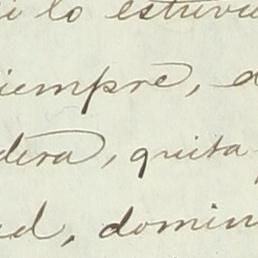 i lo estuvie
iempre, d
dera, quita
ed, domin